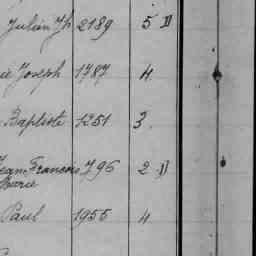 Julien Jh 2189 5 D
ie Joseph 1787 4
Baptiste 1251 3.
Jean François 796 2 D
Marie
Paul 1955 4